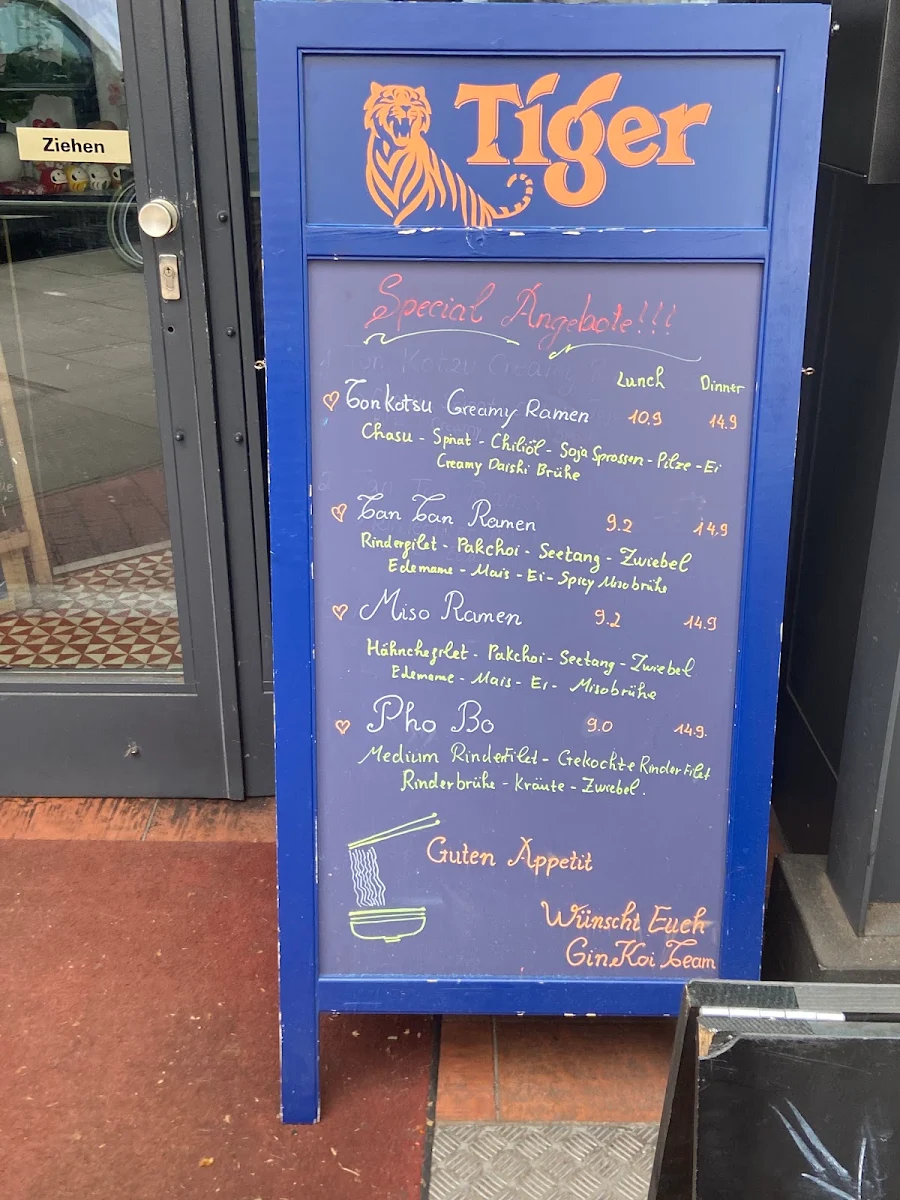 Ziehen
Tiger
Special Angebote!!!
Lunch Dinner
Tonkotsu Creamy Ramen 10.9 14.9
Chasu - Spinat - Chiliöl - Soja Sprossen - Pilze - Ei
Creamy Daishi Brühe
Tan Tan Ramen 9.2 14.9
Rinderfilet - Pakchoi - Seetang - Zwiebel
Edemame - Mais - Ei - Spicy Misobrühe
Miso Ramen 9.2 14.9
Hähnchefilet - Pakchoi - Seetang - Zwiebel
Edemame - Mais - Ei - Misobrühe
Pho Bo 9.0 14.9.
Medium RinderFilet - Gekochte RinderFilet
Rinderbrühe - Kräute - Zwiebel.
Guten Appetit
Wünscht Euch
GinKoi Team